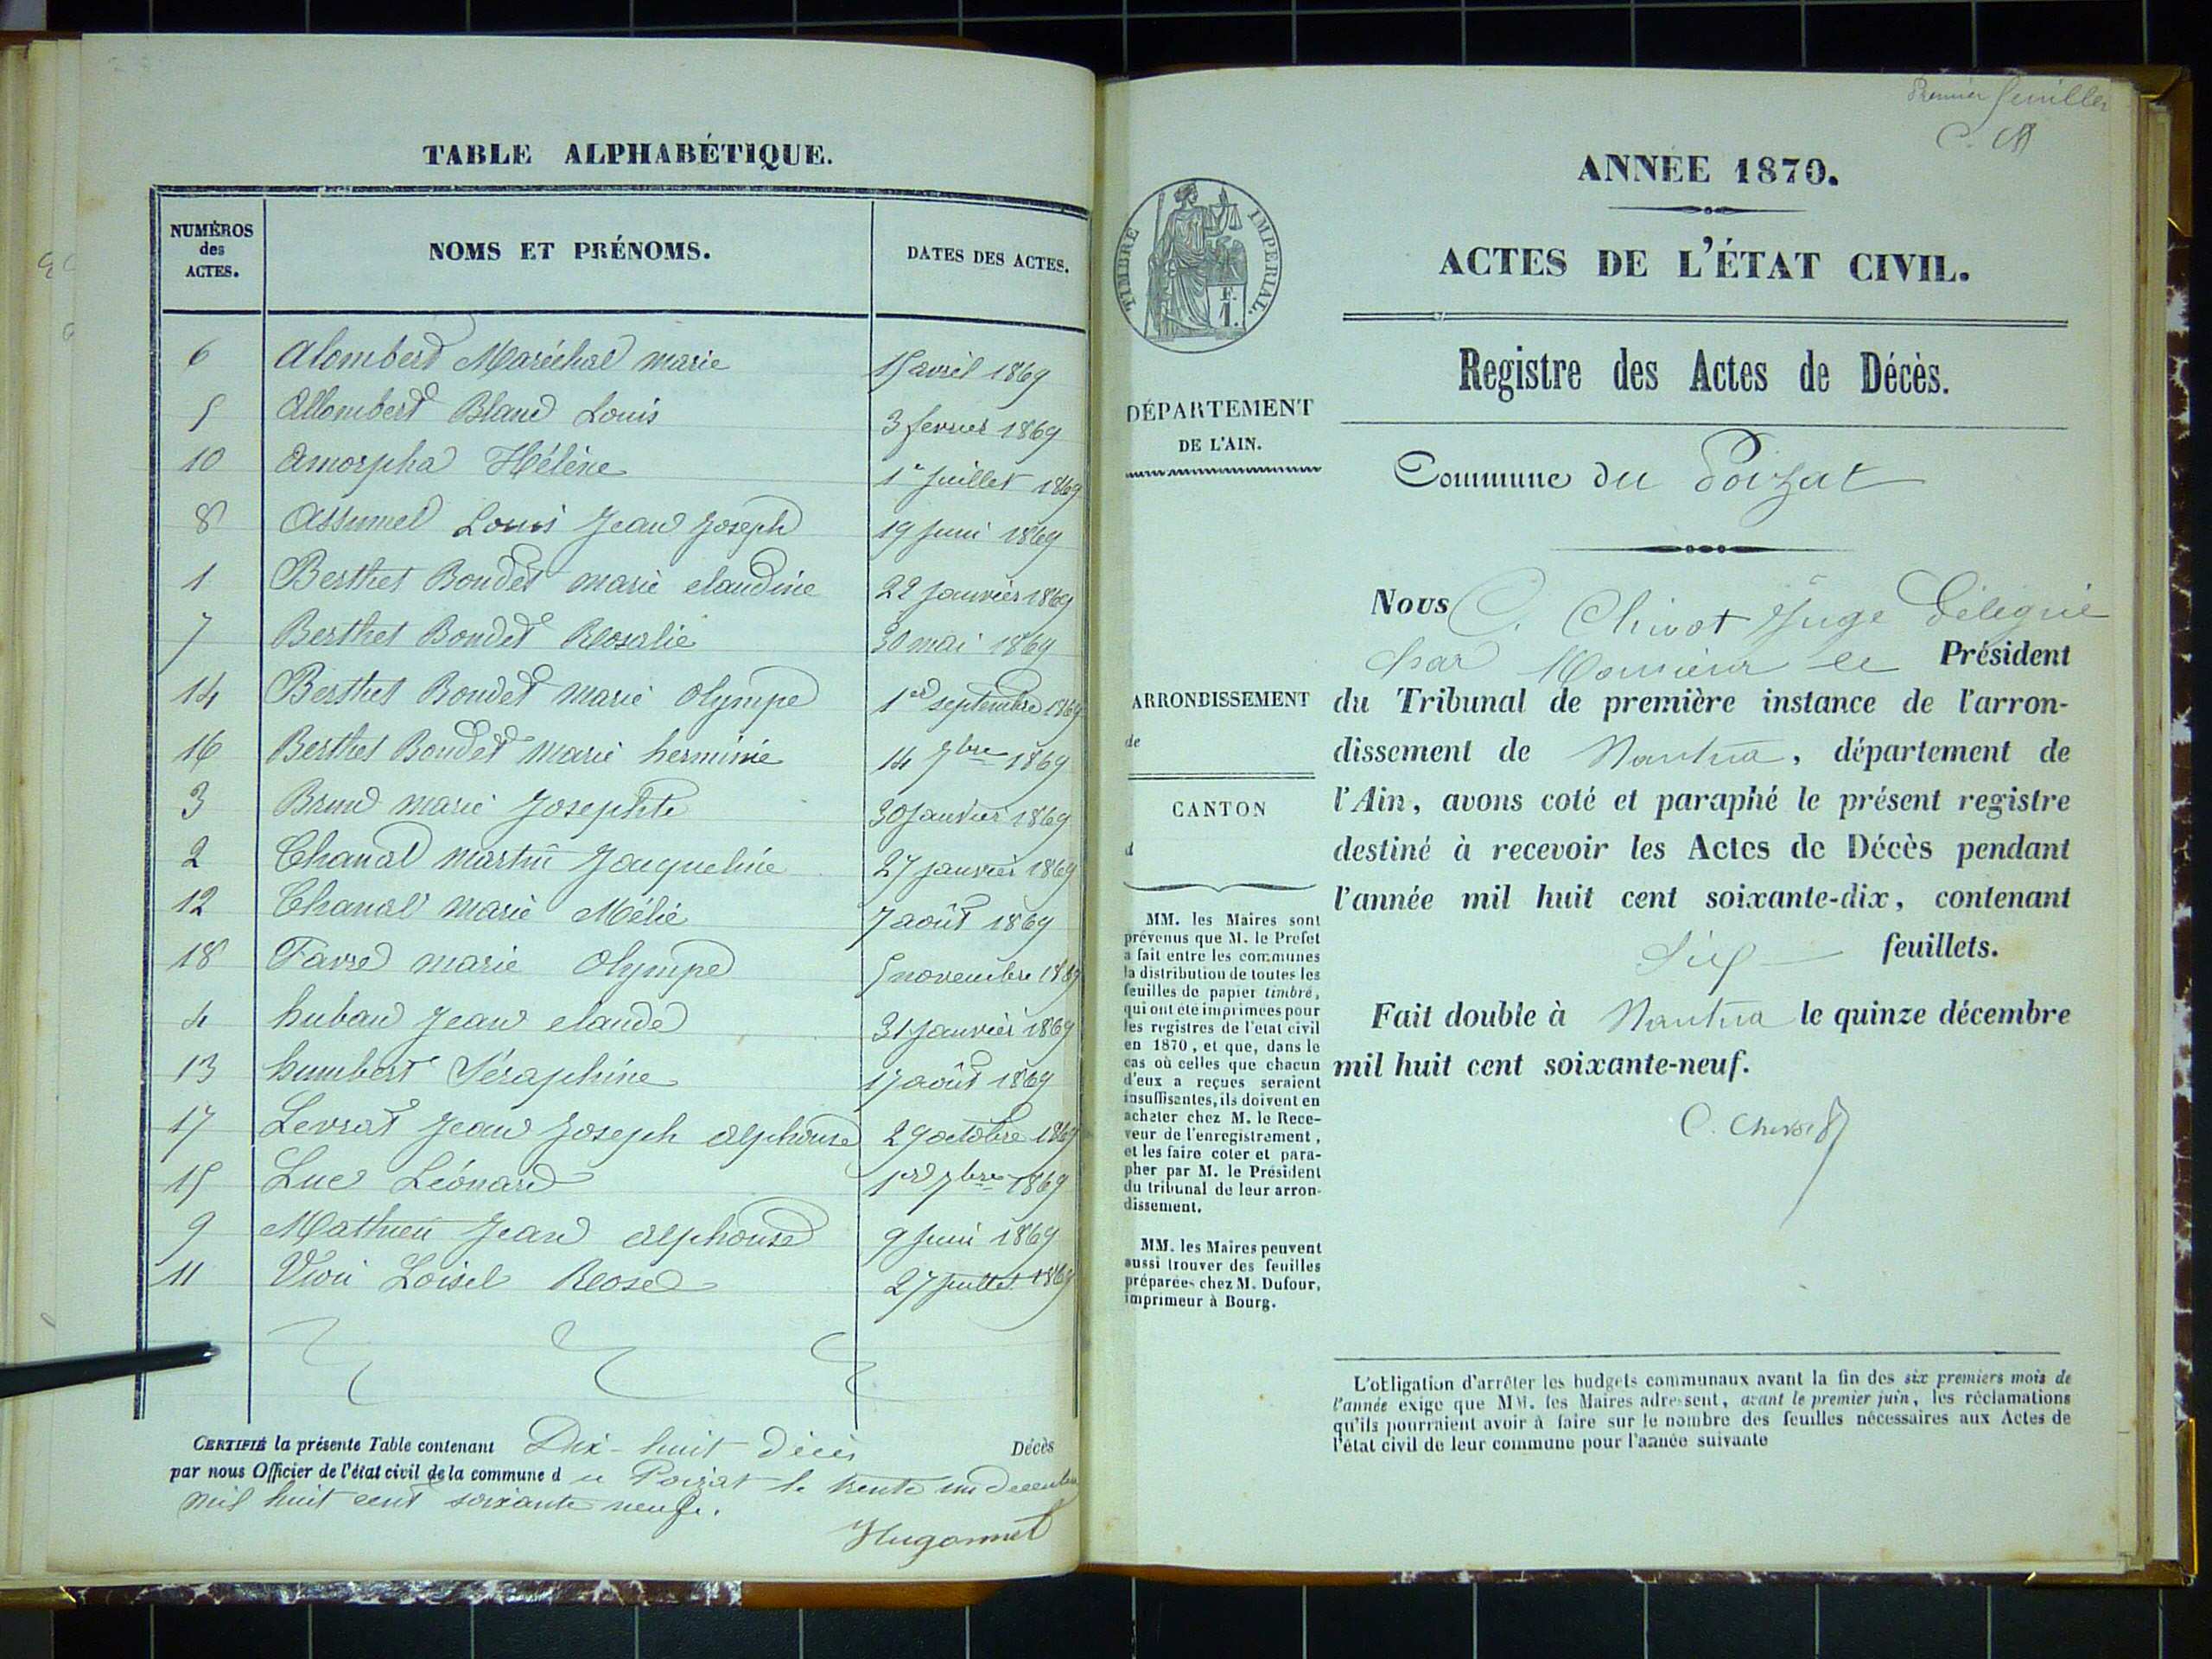 TABLE ALPHABÉTIQUE.
NUMÉROS des ACTES. NOMS ET PRÉNOMS. DATES DES ACTES.
6 Alombert Maréchal marie 15 avril 1869
5 Allombert Blanc Louis 3 fevrier 1869
10 Amorpha Hélène 1er Juillet 1869
8 Assumel Louis Jean Joseph 19 Juin 1869
1 Berthet Bondet marie claudine 22 Janvier 1869
7 Berthet Bondet Rosalie 30 mai 1869
14 Berthet Bondet marie Olympe 1er septembre 1869
16 Berthet Bondet marie herminie 14 7bre 1869
3 Brun marie Josephte 30 Janvier 1869
2 Chanal martin Jacqueline 27 janvier 1869
12 Chanal marie Mélie 7 août 1869
18 Favre marie Olympe 5 novembre 1869
4 huban Jean claude 31 Janvier 1869
13 humbert Séraphine 17 août 1869
17 Levrat Jean Joseph alphonse 29 octobre 1869
15 Luc Léonard 1er 7bre 1869
9 Mathieu Jean Alphonse 9 Juin 1869
11 Vion Loisel Rose 27 Juillet 1869
CERTIFIÉ la présente Table contenant Dix-huit décès Décès
par nous Officier de l'état civil de la commune d u Poizat le trente un Decembre
mil huit cent soixante neuf.
Hugonnet
Premier feuillet
C. Ch
ANNÉE 1870.
ACTES DE L'ÉTAT CIVIL.
TIMBRE IMPÉRIAL.
F. 1.
Registre des Actes de Décès.
DÉPARTEMENT
DE L'AIN.
Commune du Poizat
Nous C. Chivot Juge Délégué
par Monsieur le Président
ARRONDISSEMENT
de
CANTON
d
du Tribunal de première instance de l'arron-
dissement de Nantua, département de
l'Ain, avons coté et paraphé le présent registre
destiné à recevoir les Actes de Décès pendant
l'année mil huit cent soixante-dix, contenant
Six feuillets.
Fait double à Nantua le quinze décembre
mil huit cent soixante-neuf.
C. Chivot
MM. les Maires sont
prévenus que M. le Préfet
a fait entre les communes
la distribution de toutes les
feuilles de papier timbré,
qui ont été imprimées pour
les registres de l'état civil
en 1870, et que, dans le
cas où celles que chacun
d'eux a reçues seraient
insuffisantes, ils doivent en
acheter chez M. le Rece-
veur de l'enregistrement,
et les faire coter et para-
pher par M. le Président
du tribunal de leur arron-
dissement.
MM. les Maires peuvent
aussi trouver des feuilles
préparées chez M. Dufour,
imprimeur à Bourg.
L'obligation d'arrêter les budgets communaux avant la fin des six premiers mois de
l'année exige que MM. les Maires adressent, avant le premier juin, les réclamations
qu'ils pourraient avoir à faire sur le nombre des feuilles nécessaires aux Actes de
l'état civil de leur commune pour l'année suivante